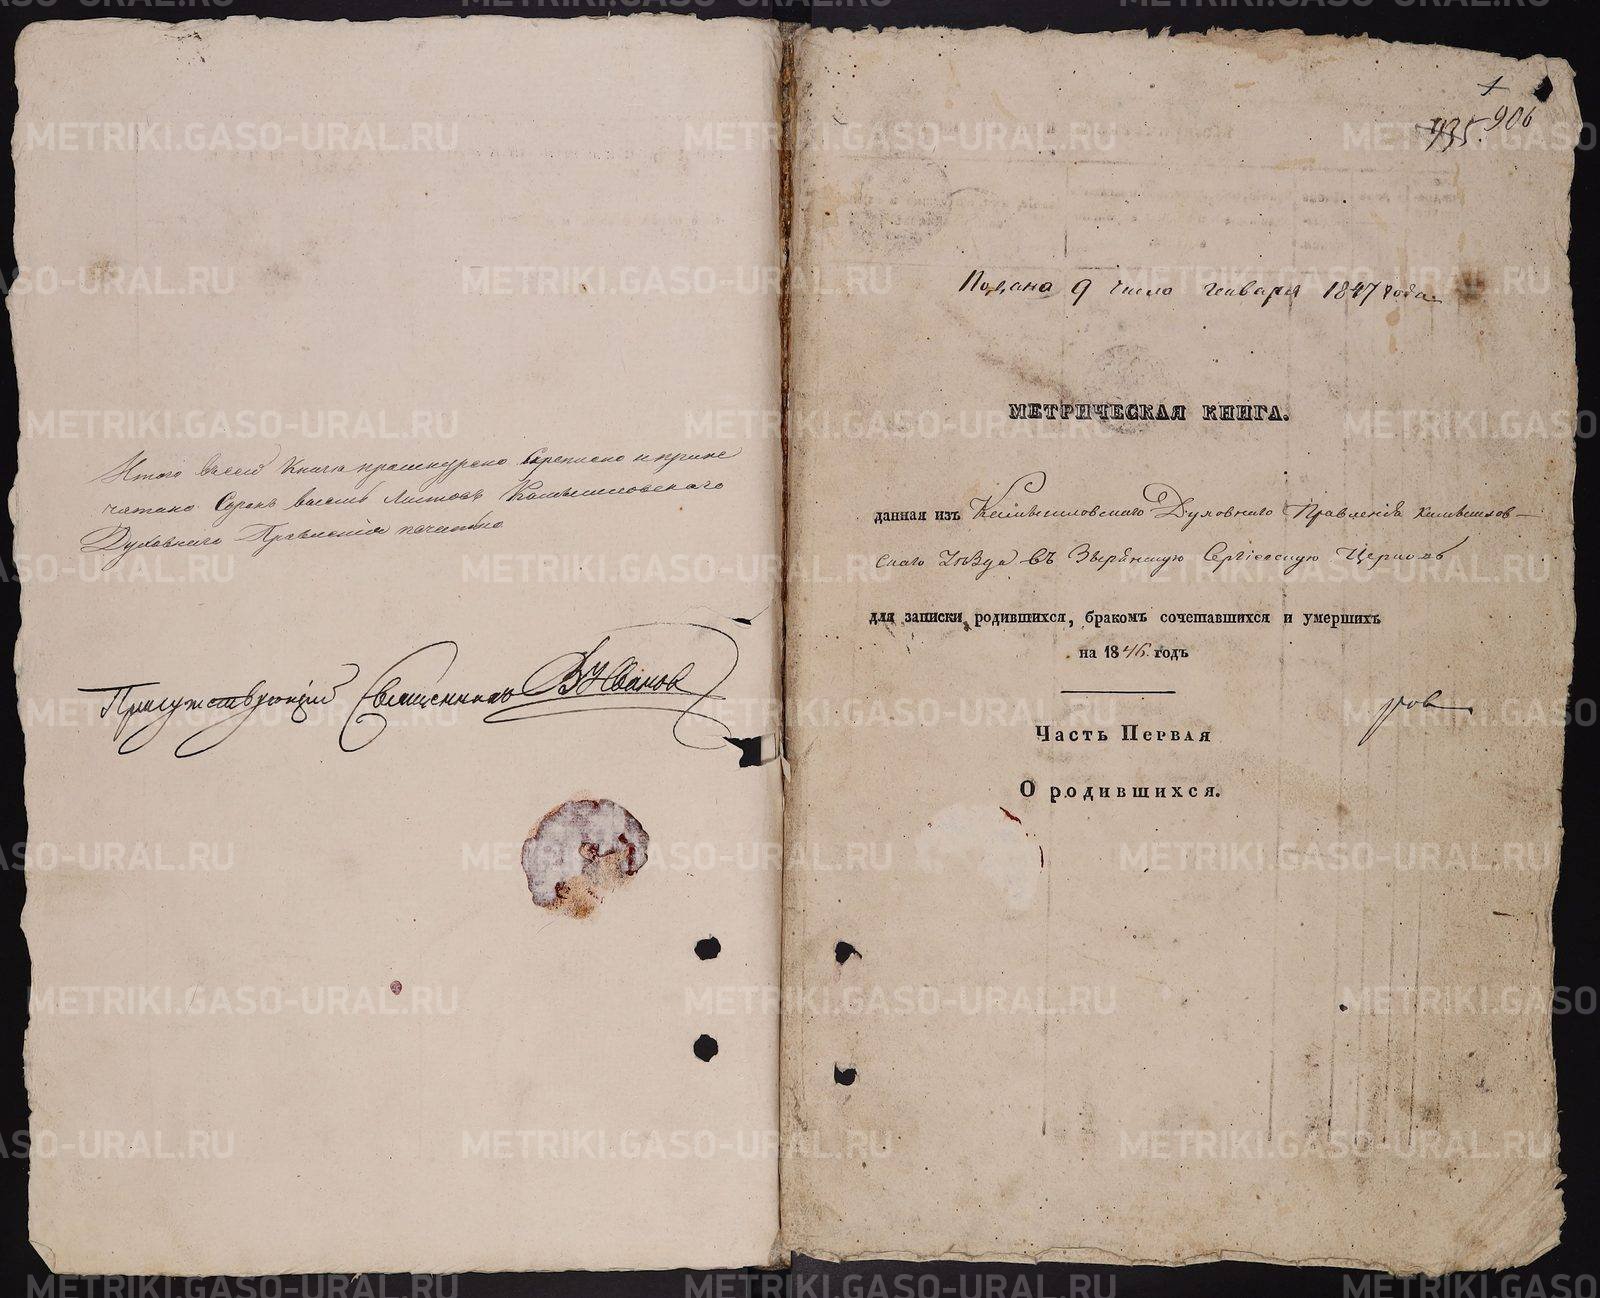 Итого въ сей Книге прошнурено Скреплено и припе
чатано Сорокъ восемь Листовъ Камышловскаго
Духовнаго Правленія печатью
Присутствующій Священникъ В Иванов
1
435. 906
Подана 9 число генваря 1847 года
МЕТРИЧЕСКАЯ КНИГА.
данная изъ Камышловскаго Духовнаго Правленія камышлов-
скаго Уѣзда въ Зырянскую Сергіевскую Церковь
для записки родившихся, бракомъ сочетавшихся и умершихъ
на 1846 годъ
Часть Первая
О родившихся.
METRIKI.GASO-URAL.RU